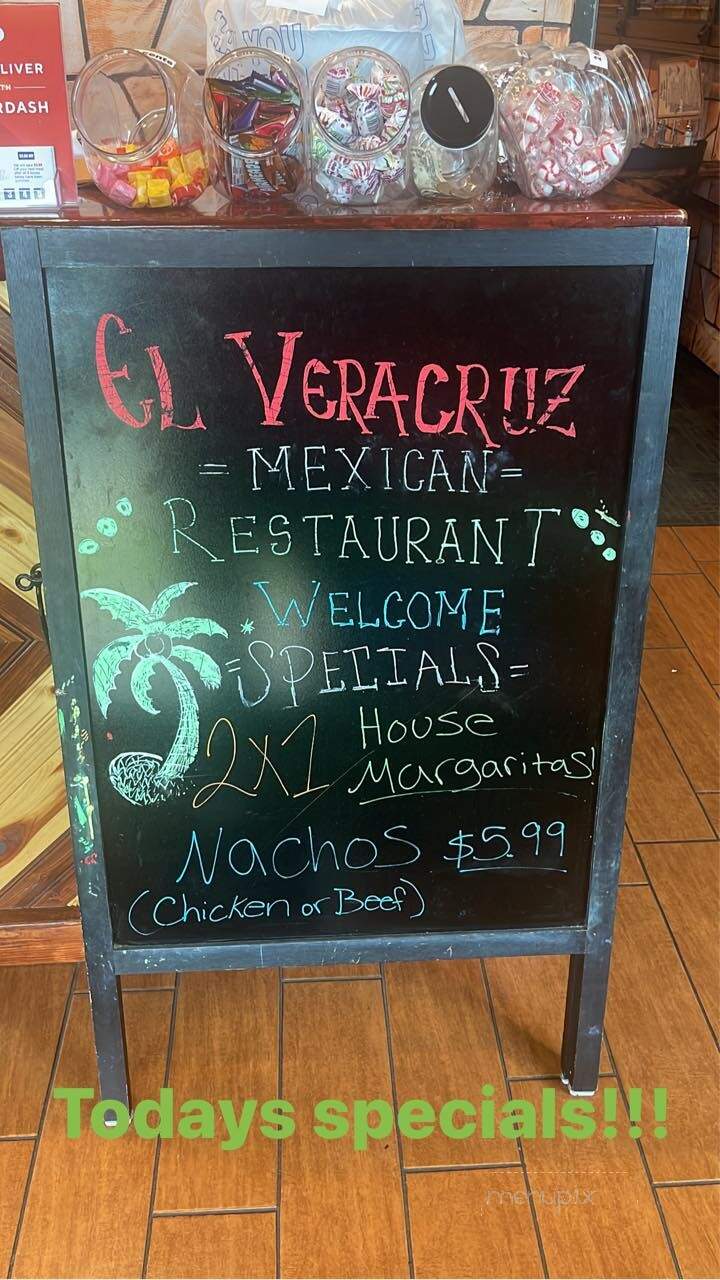 YOU
LIVER
WITH
RDASH
EL VERACRUZ
= MEXICAN =
RESTAURANT
* WELCOME
=SPECIALS=
2x1 House
Margaritas!
Nachos $5.99
(Chicken or Beef)
Todays specials!!!
menupix